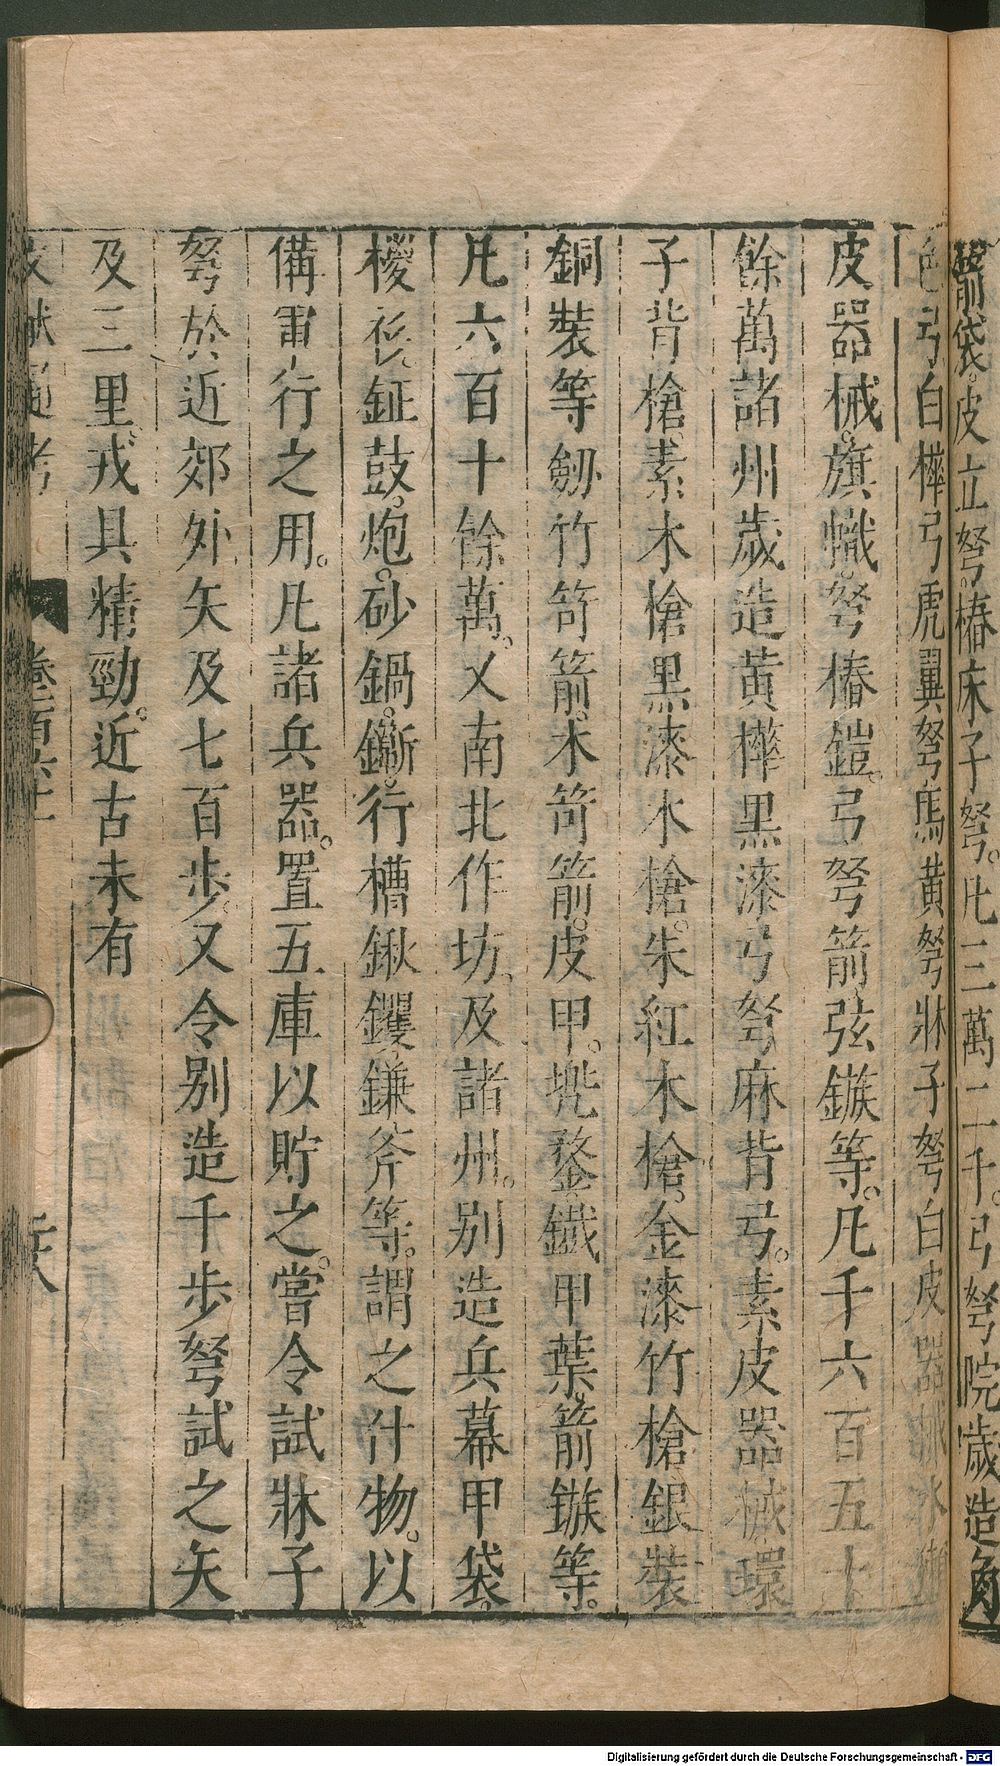 箭袋。皮立弩。樁床子弩。凡三萬二千。弓弩院歲造角
色弓白樺弓虎翼弩馬黃弩牀子弩白皮器
皮器械。旗幟。弩樁鎧。弓弩箭弦鏃等。凡千六百五十
餘萬諸州歲造黃樺黑漆弓弩麻背弓。素皮器械環
子背槍、素木槍黑漆木槍。朱紅木槍。金漆竹槍銀裝
銅裝等劒竹笴箭。木笴箭。皮甲。兠鍪鐵甲葉。箭鏃等。
凡六百十餘萬。又南北作坊、及諸州。別造兵幕甲袋。
鉦鼓。炮。砂鍋。鐁。行槽鍬钁、鎌斧等。謂之什物。以
備軍行之用。凡諸兵器。置五庫以貯之。嘗令試牀子
弩於近郊外矢及七百步。又令別造千步弩試之矢
及三里。戎具精勁。近古未有
文獻通考 卷百六十一